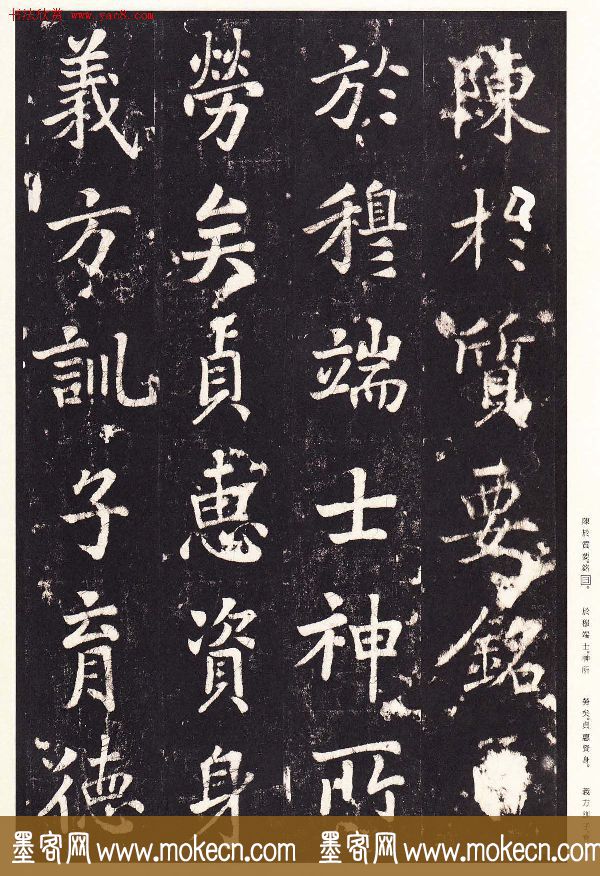 书法欣赏 www.yac8.com
陳於質要銘
於穆端士神所
勞矣貞惠資身
義方訓子育德
陳於質要銘曰。
於穆端士。神所
勞矣。貞惠資身。
義方訓子
墨客网 www.mokecn.com 墨客网 www.mokecn.com